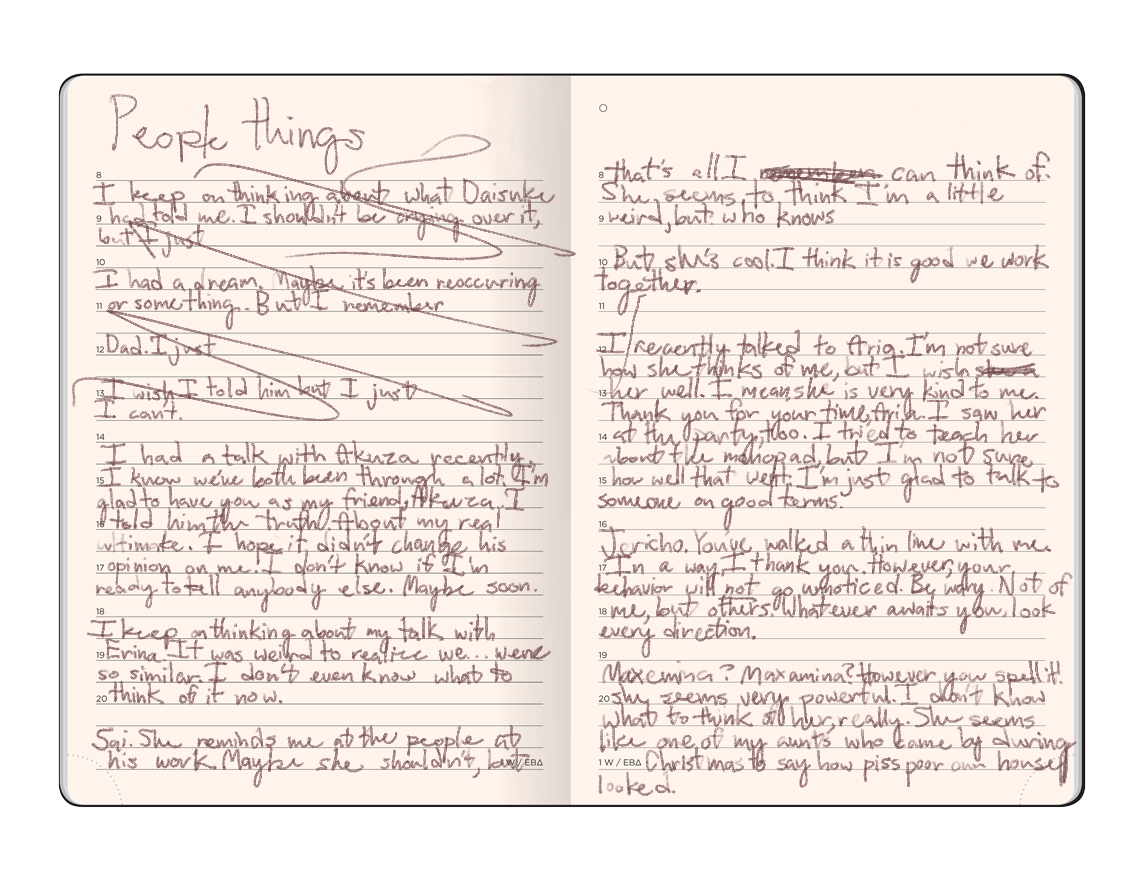 People things
8
I keep on thinking about what Daisuke
9 had told me. I shouldn't be crying over it,
but I just
10
I had a dream. Maybe it's been reoccuring
11 or something. But I remember
12 Dad. I just
13 I wish I told him but I just
I can't.
14
I had a talk with Akuza recently.
15 I know we've both been through a lot. I'm
glad to have you as my friend, Akuza. I
16 told him the truth. About my real
ultimate. I hope it didn't change his
17 opinion on me. I don't know if I'm
ready to tell anybody else. Maybe soon.
18
I keep on thinking about my talk with
19 Erina. It was weird to realize we... were
so similar. I don't even know what to
20 think of it now.
Sai. She reminds me at the people at
his work. Maybe she shouldn't, but
1 W / EBA
8 that's all I remember can think of.
She seems to think I'm a little
9 weird, but who knows
10 But she's cool. I think it is good we work
together.
11
12 I recently talked to Aria. I'm not sure
how she thinks of me, but I wish
13 her well. I mean she is very kind to me.
Thank you for your time, Aria. I saw her
14 at the party, too. I tried to teach her
about the monopad, but I'm not sure
15 how well that went. I'm just glad to talk to
someone on good terms.
16
Jericho. You've walked a thin line with me.
17 In a way, I thank you. However, your
behavior will not go unnoticed. Be wary. Not of
18 me, but others. Whatever awaits you, look
every direction.
19
Maxemina? Maxamina? However you spell it!
20 She seems very powerful. I don't know
what to think of her, really. She seems
like one of my aunts who came by during
1 W / EBA Christmas to say how piss poor our house
looked.